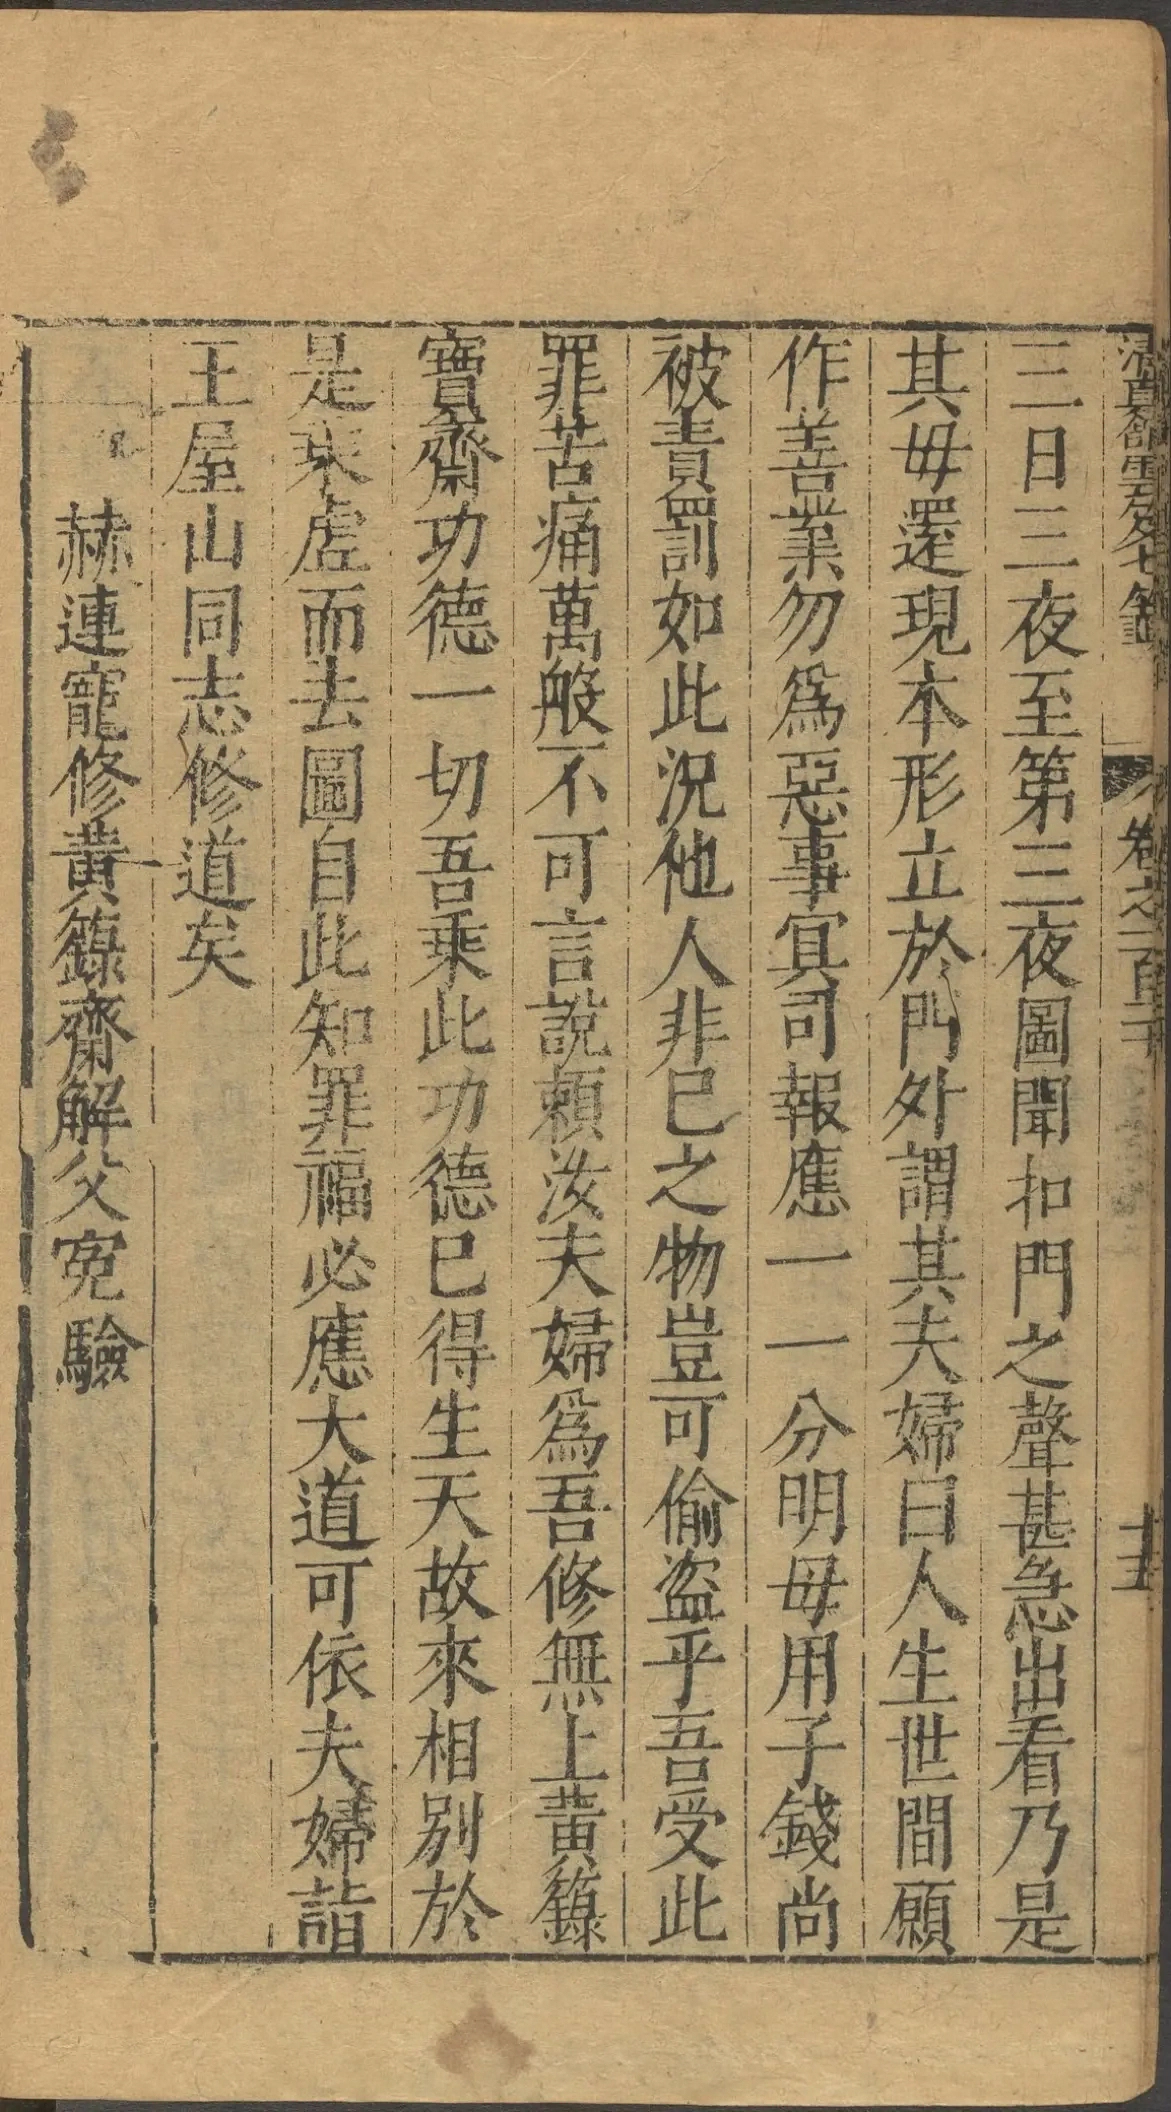 清真館雲笈七籤 卷之一百二十 十五
三日三夜至第三夜圖聞扣門之聲甚急出看乃是
其母還現本形立於門外謂其夫婦曰人生世間願
作善業勿為惡事冥司報應一一分明母用子錢尚
被責罰如此況他人非己之物豈可偷盜乎吾受此
罪苦痛萬般不可言說賴汝夫婦為吾修無上黃籙
寶齋功德一切吾乘此功德已得生天故來相別於
是乘虛而去圖自此知罪福必應大道可依夫婦詣
王屋山同志修道矣
赫連寵修黃籙齋解父冤驗